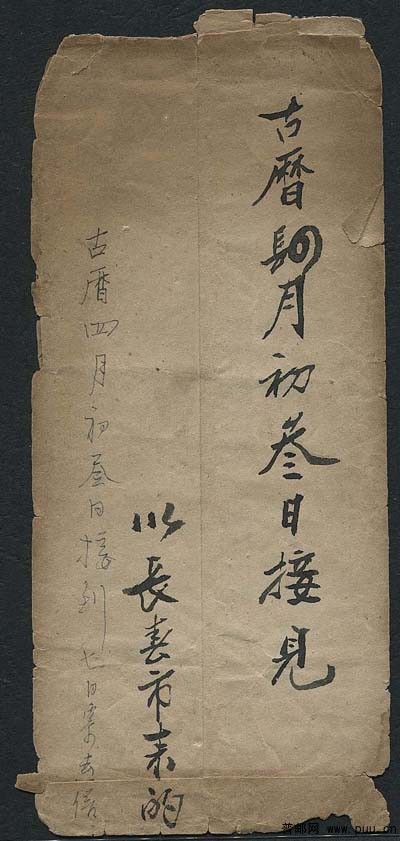 古曆肆月初叁日接見
以長春市来的
古曆四月初叁日接到七日寄去信
普邮网 www.puu.cn